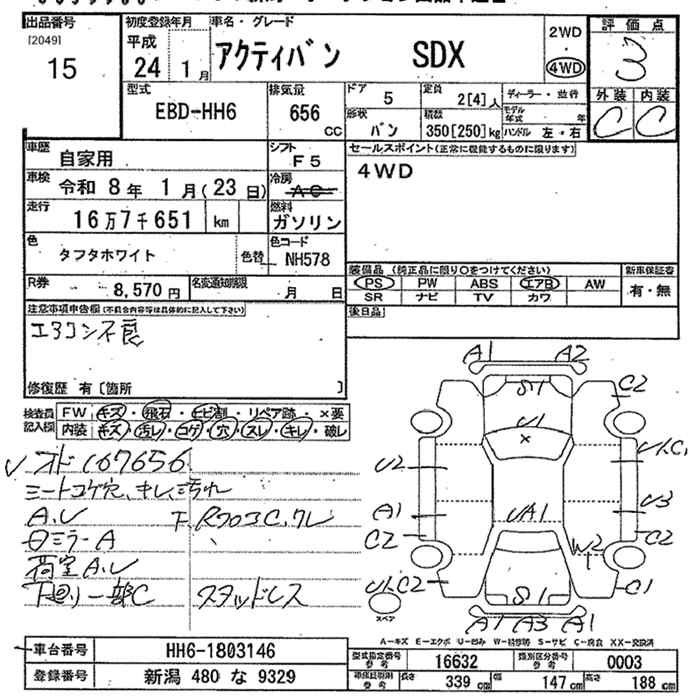 出品番号
[2049]
15
初度登録年月
平成
24 1月
車名・グレード
アクティバン SDX
2WD
・
4WD
評価点
3
外装 内装
C C
型式
EBD-HH6
排気量
656
CC
ドア
5
定員
2[4]人
ディーラー・並行
形状
バン
積数
350[250]kg
モデル年式 年
ハンドル 左・右
車歴
自家用
シフト
F5
セールスポイント(正常に機能するものに限ります)
4WD
車検
令和 8年 1月(23日)
冷房
AC
走行
16万7千651 km
燃料
ガソリン
色
タフタホワイト
色替
色コード
NH578
装備品(純正品に限り○をつけてください)
新車保証書
PS PW ABS エアB AW
有・無
SR ナビ TV カワ
R券
8,570円
名変通知期限
月 日
後日品
注意事項申告欄(不具合内容等は具体的に記入して下さい)
エアコン不良
修復歴 有[箇所 ]
検査員
記入欄
FW キズ・飛石・ヒビ割・リペア跡・×要
内装 キズ・汚レ・コゲ・穴・スレ・キレ・破レ
オド167656
シートコゲ穴、キレ、汚れ
A.U
F.Rフロアc.クレ
ミラーA
荷室A.U
下廻り一部C
スタッドレス
A1 A2
S1
C2
U1
×
U2
U1.C1
A1
U3
UA1
C2
C2
W2
U1.C2
C1
S1
スペア
A1 A3 A1
A-キズ E-エクボ U-凹み W-補修跡 S-サビ C-腐食 XX-交換済
車台番号
HH6-1803146
型式指定番号
参考
16632
類別区分番号
参考
0003
登録番号
新潟 480 な 9329
車検証記載
参考
長さ
339cm
幅
147cm
高さ
188cm